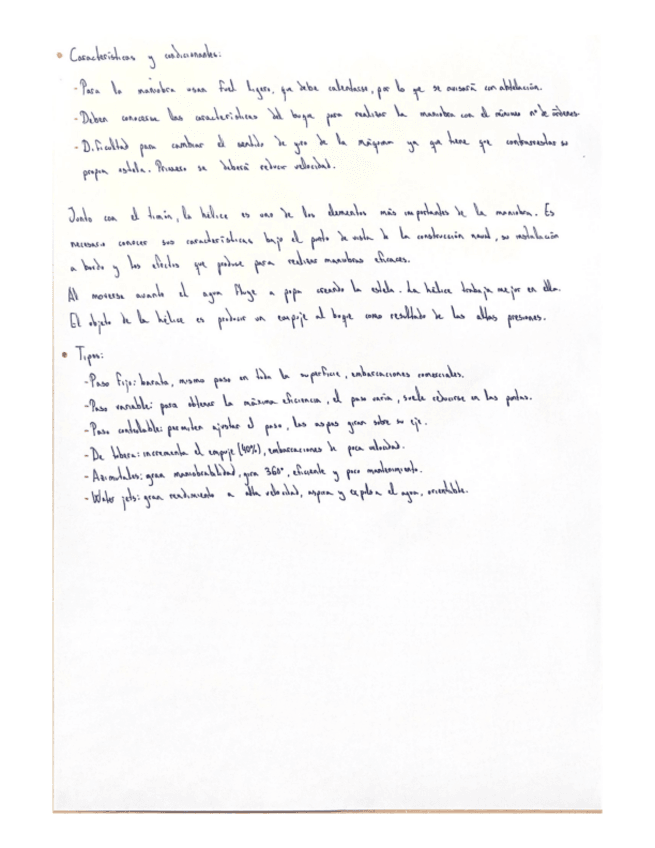 • Características y condicionantes:
- Para la maniobra usan fuel ligero, que debe calentarse, por lo que se avisará con antelación.
- Deben conocerse las características del buque para realizar la maniobra con el mínimo nº de órdenes.
- Dificultad para cambiar el sentido de giro de la máquina ya que tiene que contrarrestar su
propia estela. Primero se deberá reducir velocidad.
Junto con el timón, la hélice es uno de los elementos más importantes de la maniobra. Es
necesario conocer sus características bajo el punto de vista de la construcción naval, su instalación
a bordo y los efectos que produce para realizar maniobras eficaces.
Al moverse avante el agua fluye a popa creando la estela. La hélice trabaja mejor en ella.
El objeto de la hélice es producir un empuje al buque como resultado de las altas presiones.
• Tipos:
- Paso fijo: barata, mismo paso en toda la superficie, embarcaciones comerciales.
- Paso variable: para obtener la máxima eficiencia, el paso varía, suele reducirse en las puntas.
- Paso controlable: permiten ajustar el paso, las aspas giran sobre su eje.
- De tobera: incrementa el empuje (40%), embarcaciones de poca velocidad.
- Azimutales: gran maniobrabilidad, gira 360°, eficiente y poco mantenimiento.
- Water jets: gran rendimiento a alta velocidad, aspira y expulsa el agua, orientable.